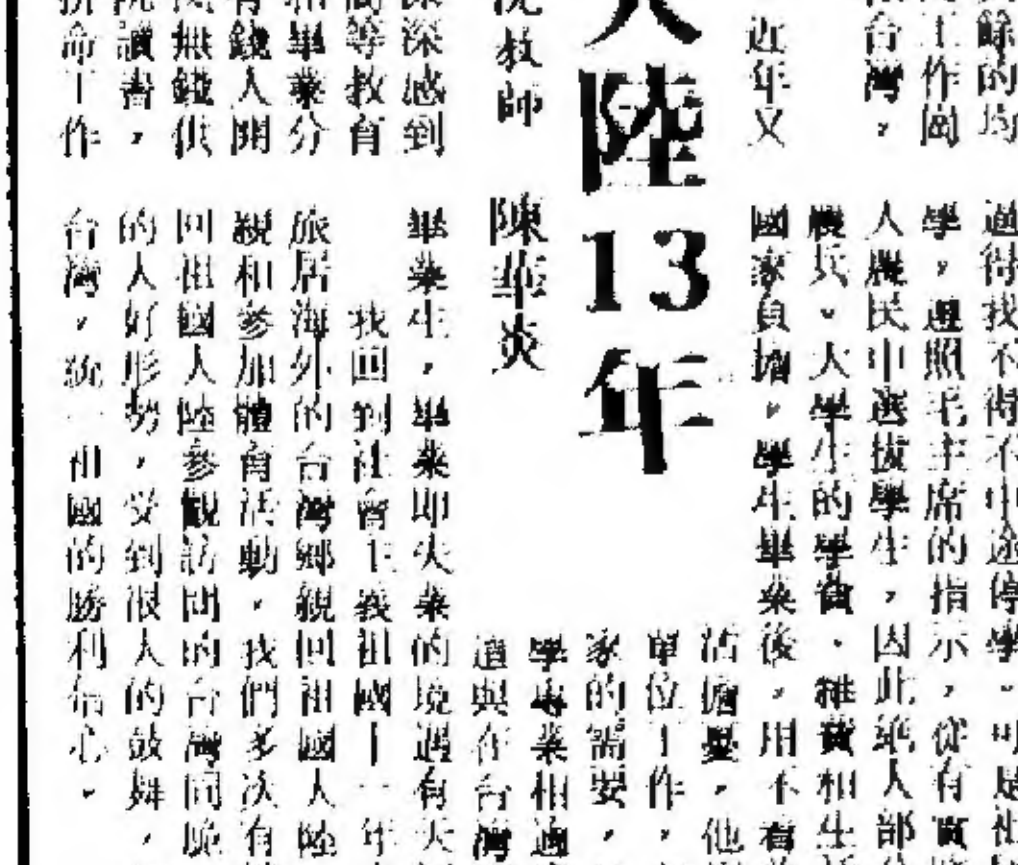 餘的均
工作崗
台灣，
近年又
大陸13年
教師　陳華炎
深深感到
等教育
和畢業分
有錢人開
無錢供
讀書，
拚命工作
過得找不得不中途停學。可是
學，遵照毛主席的指示，從有實
人農民中選拔學生，因此絕大部
農兵。大學生的學費、雜費和生
國家負擔，學生畢業後，用不着
活擔憂，他
單位工作，
家的需要，
學專業相適
道與在台灣
畢業生，畢業即失業的境遇有天
我回到社會主義祖國十一年
旅居海外的台灣鄉親回祖國大陸
親和參加體育活動，我們多次有
回祖國大陸參觀訪問的台灣同胞
的大好形勢，受到很大的鼓舞，
台灣，統一祖國的勝利信心。